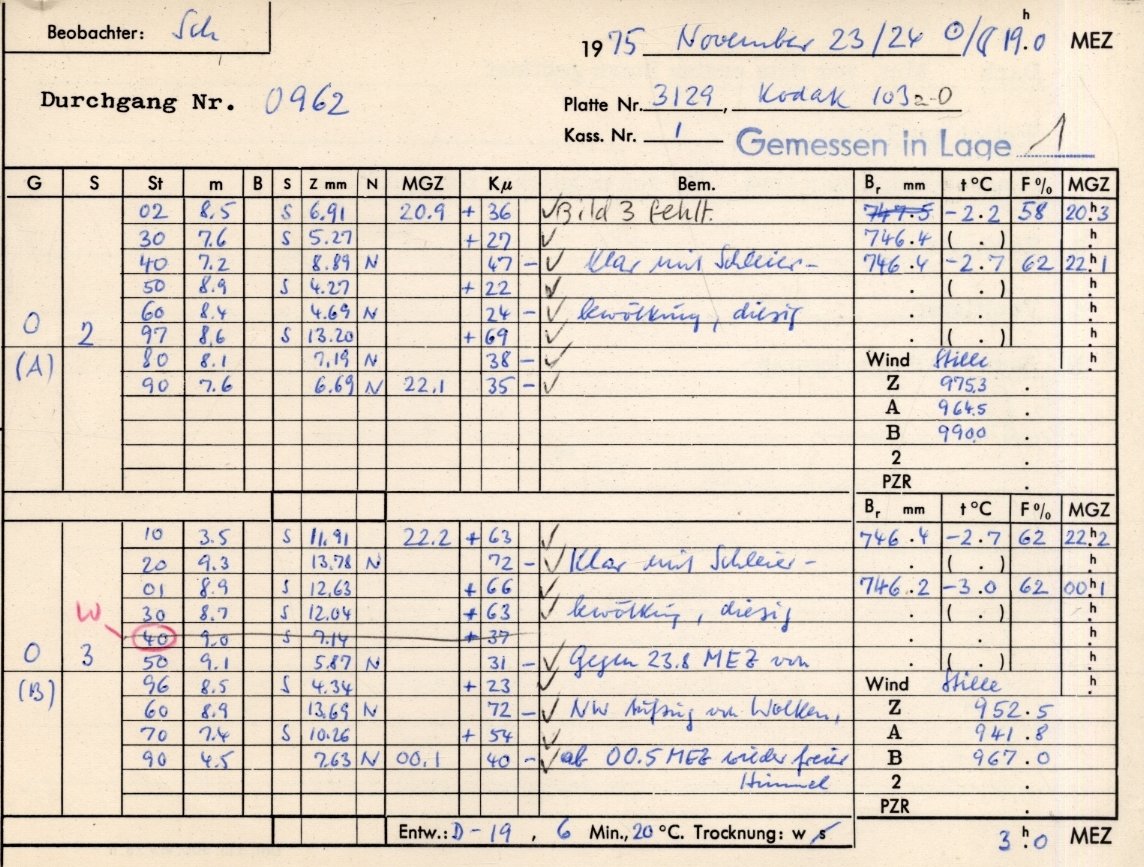 Beobachter: Sch
1975 November 23/24 ⊙/☾ 19ʰ.0 MEZ
Durchgang Nr. 0962
Platte Nr. 3129, Kodak 103a-O
Kass. Nr. 1
Gemessen in Lage 1
G S St m B S Z mm N MGZ Kμ Bem. Bᵣ mm t°C F% MGZ
02 8.5 S 6.91 20.9 + 36 ✓ Bild 3 fehlt. 747.5 -2.2 58 20ʰ.3
30 7.6 S 5.27 + 27 ✓ 746.4 ( . ) ʰ.
40 7.2 8.89 N 47 - ✓ Klar mit Schleier- 746.4 -2.7 62 22ʰ.1
50 8.9 S 4.27 + 22 ✓ . ( . ) ʰ.
60 8.4 4.69 N 24 - ✓ bewölkung, diesig . . ʰ.
O 2 97 8.6 S 13.20 + 69 ✓ . ( . ) ʰ.
(A) 80 8.1 7.19 N 38 - ✓ Wind Stille ʰ.
90 7.6 6.69 N 22.1 35 - ✓ Z 975.3 .
A 964.5 .
B 990.0 .
2 .
PZR .
Bᵣ mm t°C F% MGZ
10 3.5 S 11.91 22.2 + 63 ✓ 746.4 -2.7 62 22ʰ.2
20 9.3 13.78 N 72 - ✓ Klar mit Schleier- . ( . ) ʰ.
01 8.9 S 12.63 + 66 ✓ 746.2 -3.0 62 00ʰ.1
W 30 8.7 S 12.04 + 63 ✓ bewölkung, diesig . ( . ) ʰ.
40 9.0 S 7.14 + 37 . . ʰ.
O 3 50 9.1 5.87 N 31 - ✓ Gegen 23.8 MEZ von . ( . ) ʰ.
(B) 96 8.5 S 4.34 + 23 ✓ Wind Stille ʰ.
60 8.9 13.69 N 72 - ✓ NW Aufzug von Wolken, Z 952.5
70 7.4 S 10.26 + 54 ✓ A 941.8
90 4.5 7.63 N 00.1 40 - ✓ ab 00.5 MEZ wieder freier B 967.0
Himmel 2 .
PZR .
Entw.: D-19, 6 Min., 20 °C. Trocknung: w s
3ʰ.0 MEZ